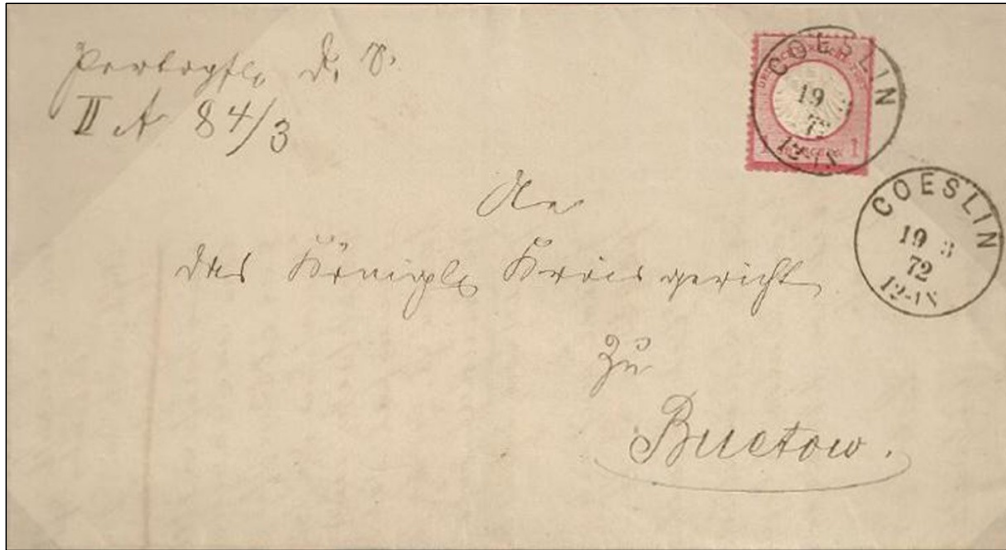 Portopfl. D. S.
II A 84/3
COESLIN
19
72
12-1N
1 1
COESLIN
19 3
72
12-1N
An
das Königl. Kreisgericht
zu
Buetow.